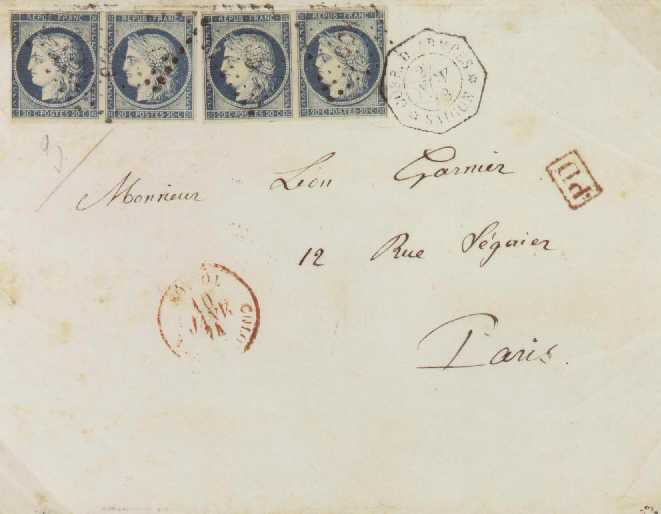 REPUB·FRANC· REPUB·FRANC· REPUB·FRANC· REPUB·FRANC·
20·C·POSTES·20·C· 20·C·POSTES·20·C· 20·C·POSTES·20·C· 20·C·POSTES·20·C·
CORR. D. ARMÉES
SAIGON
PD
Monsieur Léon Garnier
12 Rue Séguier
10
JANV
74
Paris.